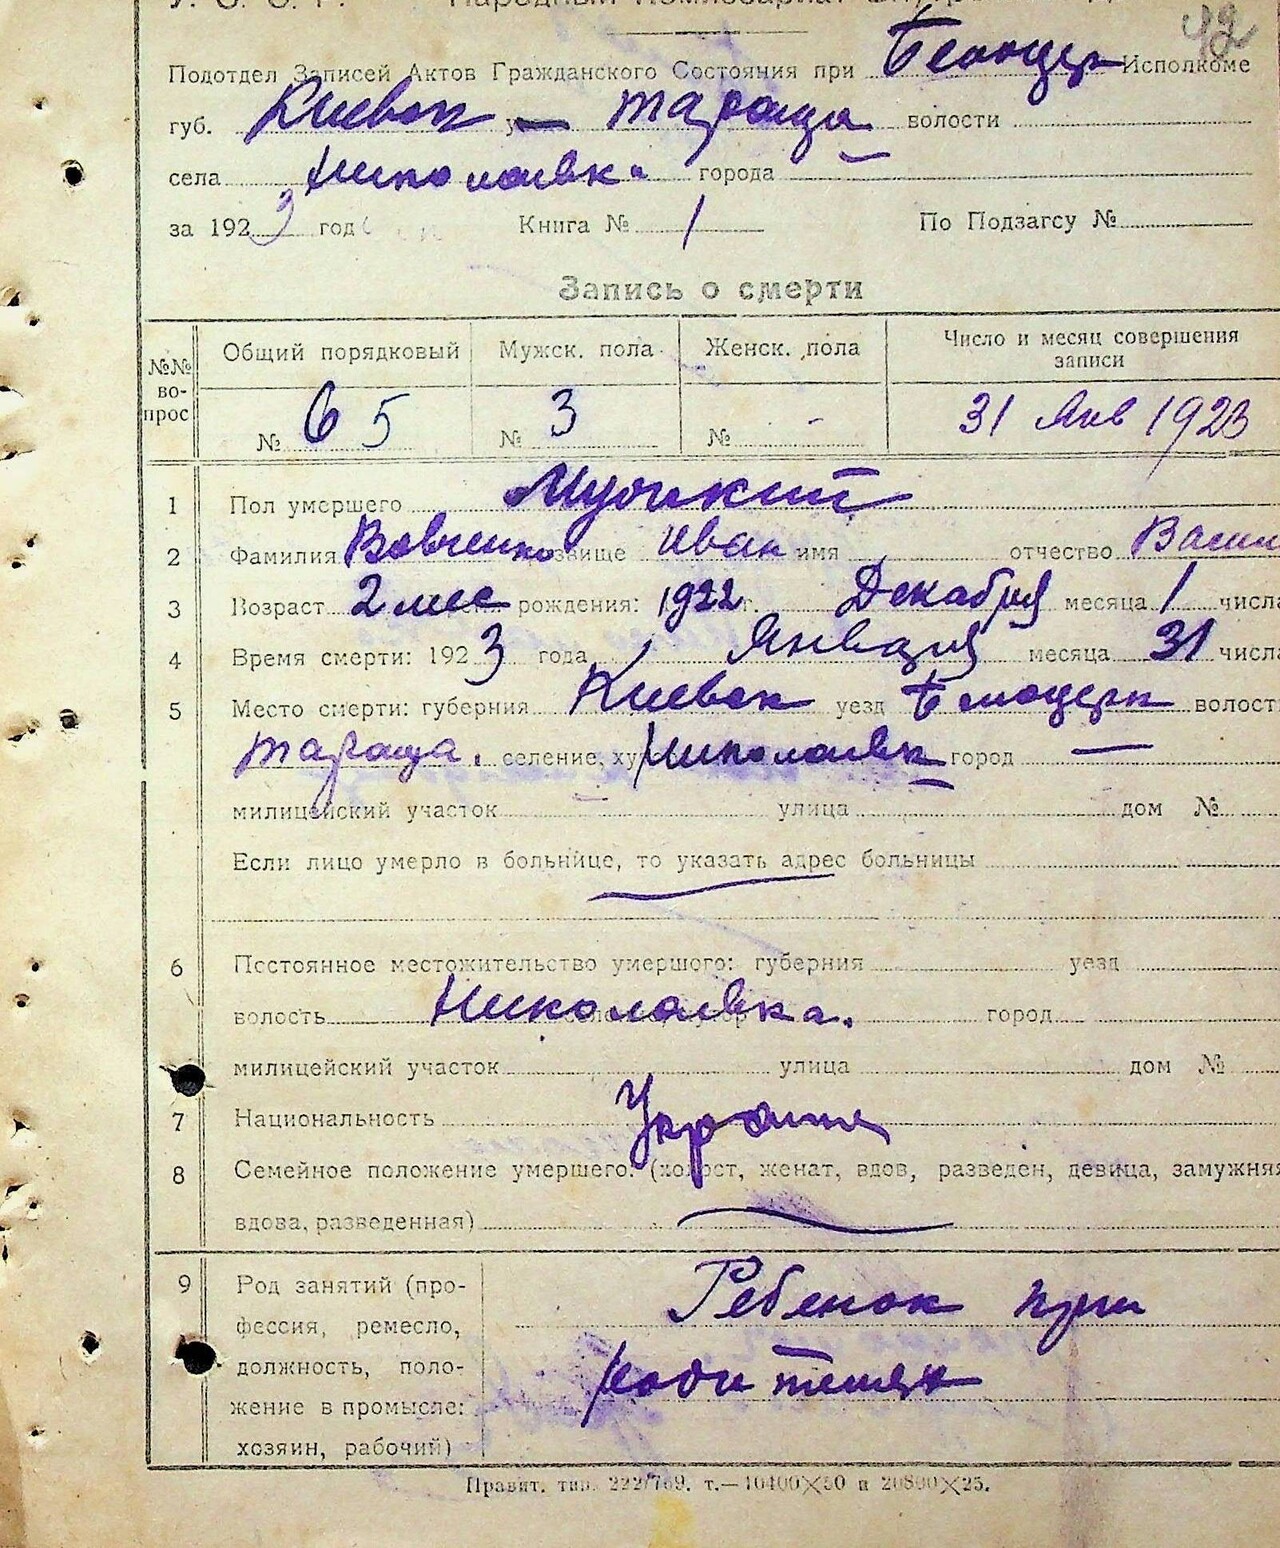 У. С. С. Р. Народный Комиссариат
42
Подотдел Записей Актов Гражданского Состояния при Белоцерк Исполкоме
губ. Киевск у — Тараща волости
села Николаевка города
за 1923 год Книга № 1 По Подзагсу №
Запись о смерти
№№ вопрос Общий порядковый Мужск. пола Женск. пола Число и месяц совершения записи
№ 65 № 3 № - 31 Янв 1923
1 Пол умершего Мужский
2 Фамилия Вовченко Иван имя отчество Васил
3 Возраст 2 мес рождения: 1922 г. Декабря месяца 1 числа
4 Время смерти: 1923 года Января месяца 31 числа
5 Место смерти: губерния Киевск уезд Белоцерк волость
Тараща. селение, ху Николаевк город —
милицейский участок улица дом №
Если лицо умерло в больнице, то указать адрес больницы
6 Постоянное местожительство умершого: губерния уезд
волость Николаевка. город
милицейский участок улица дом №
7 Национальность
8 Семейное положение умершего: (холост, женат, вдов, разведен, девица, замужняя
вдова, разведенная)
9 Род занятий (про- Ребенок при
фессия, ремесло,
должность, поло- родителях
жение в промысле:
хозяин, рабочий)
Правит. тип. 222/769. т.—10400×50 и 20800×25.